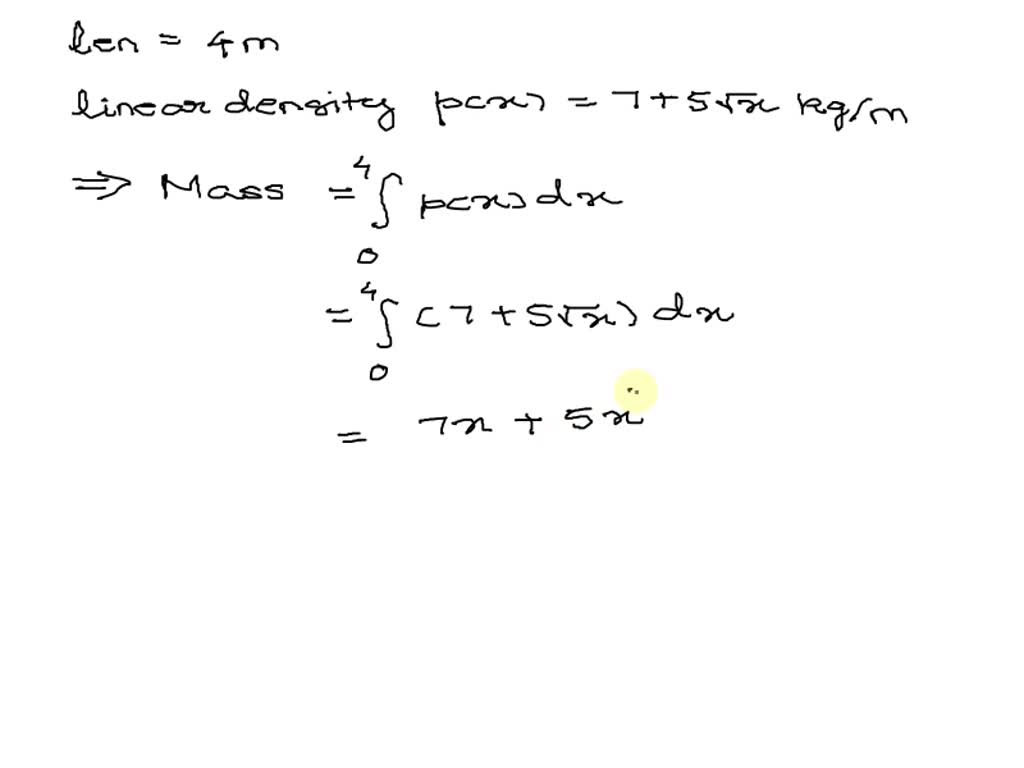 len = 4m
linear density ρ(x) = 7 + 5√x kg/m
⇒ Mass = ∫₀⁴ ρ(x) dx
= ∫₀⁴ (7 + 5√x) dx
= 7x + 5x